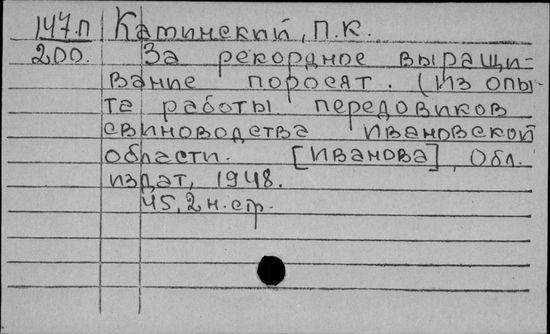 147.П Катинский, П.К.
200. За рекордное выращи-
вание поросят. (Из опы-
та работы передовиков
свиноводства Ивановской
области. [Иванова], Обл.
издат, 1948.
45,2 н. стр.